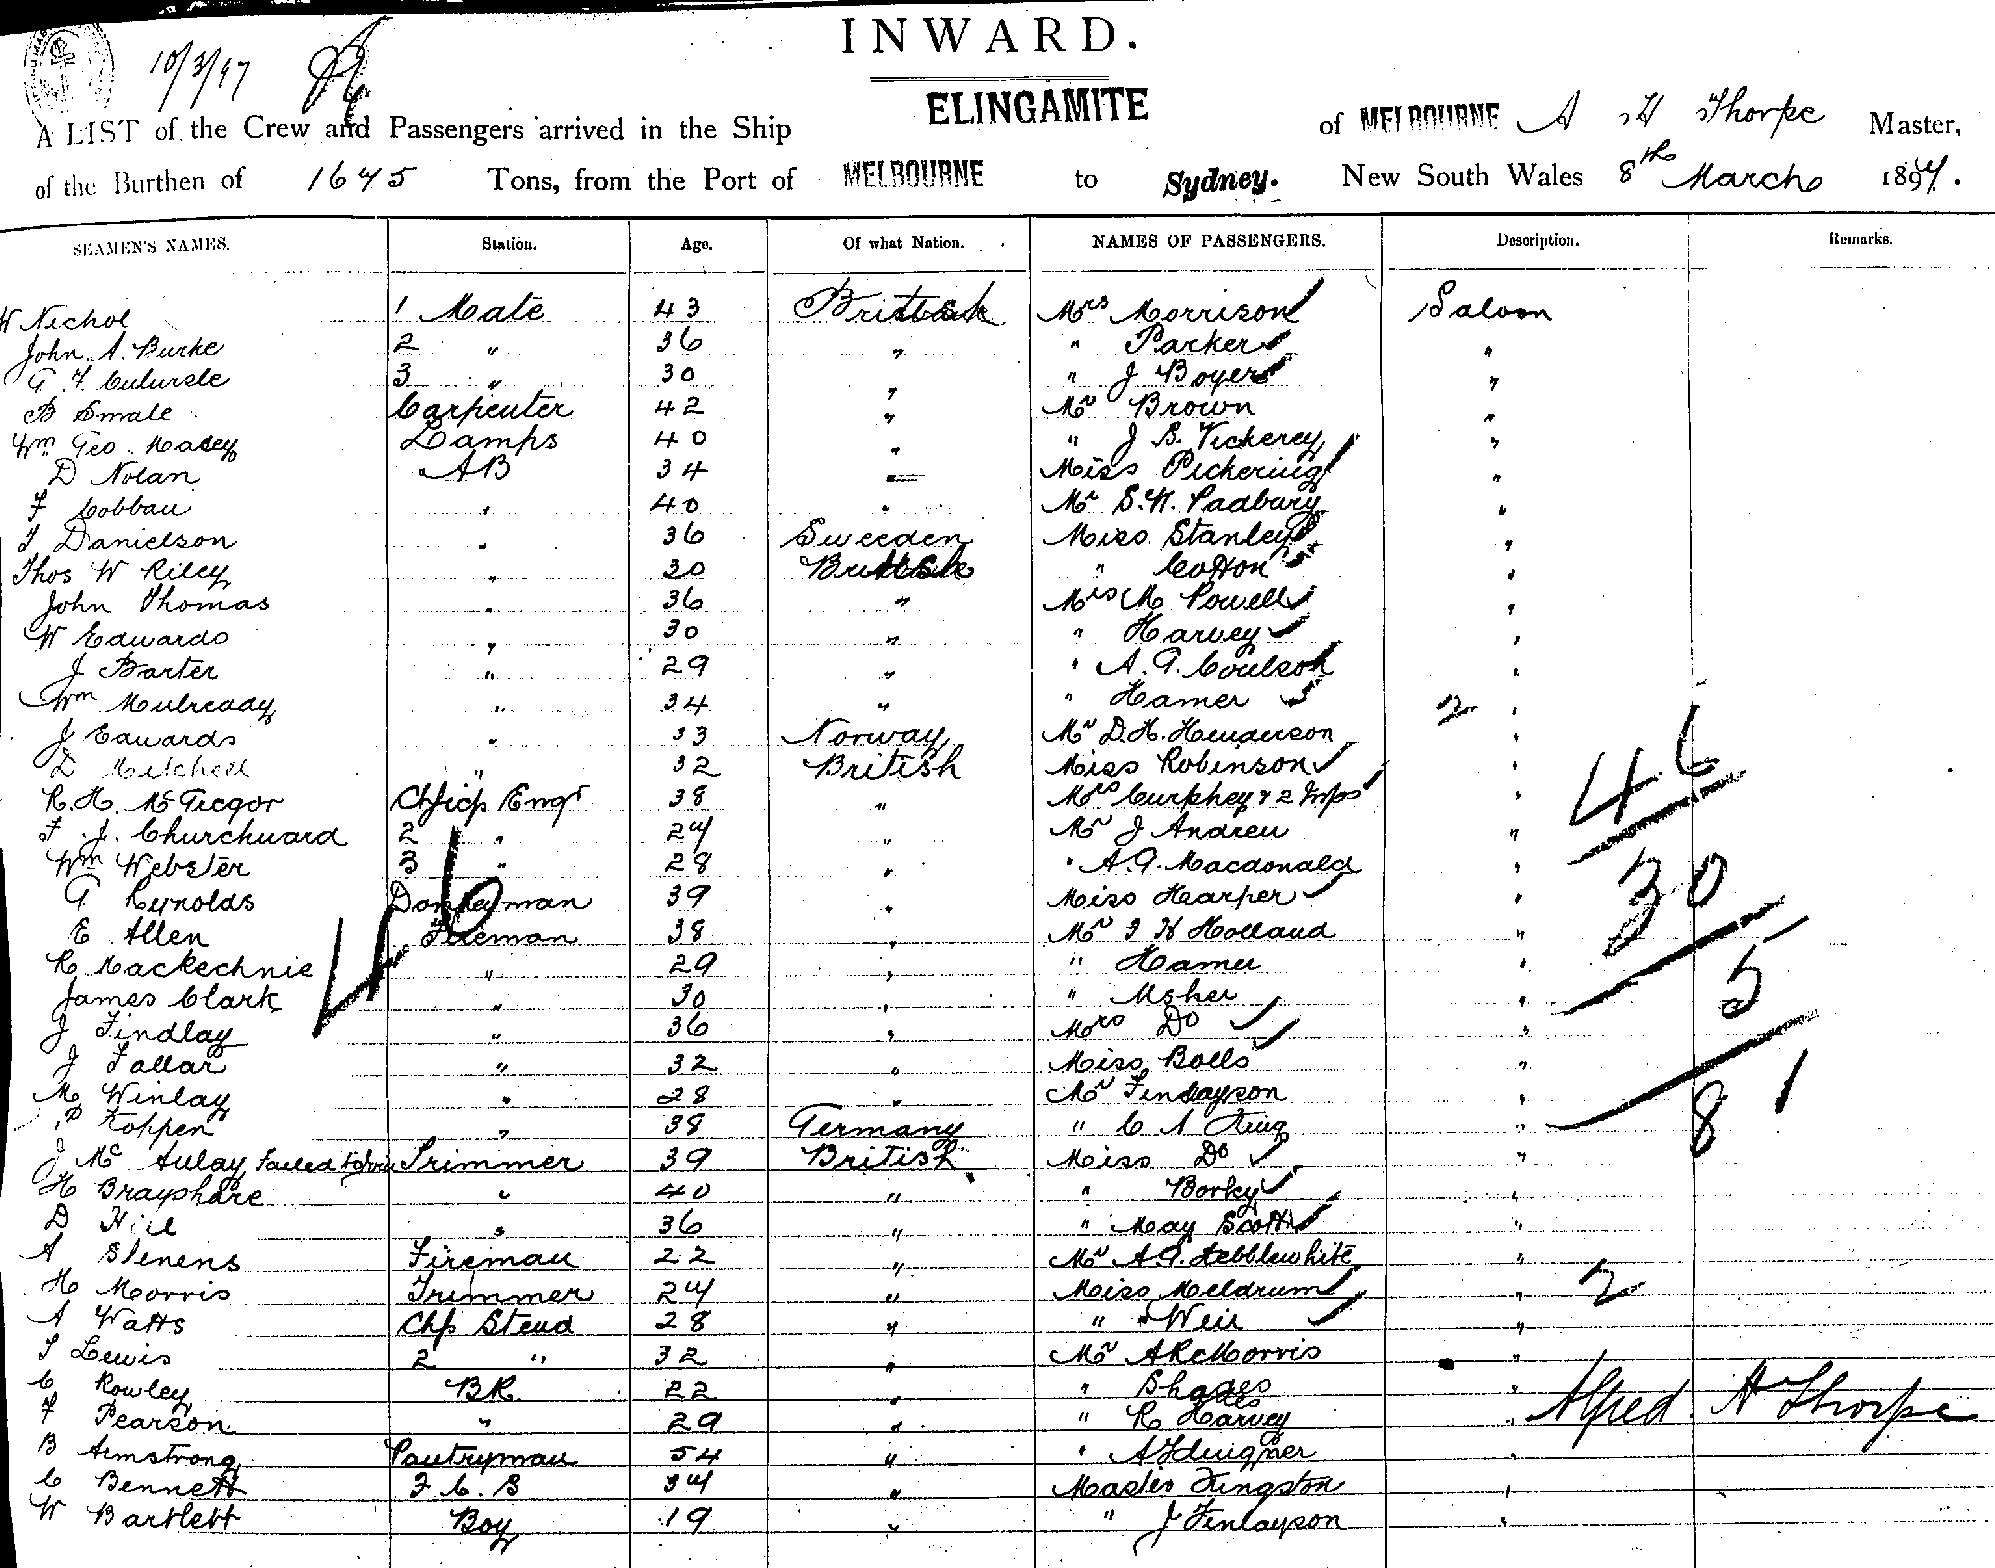 INWARD.
10/3/97
ELINGAMITE
A LIST of the Crew and Passengers arrived in the Ship of MELBOURNE A H Thorpe Master,
of the Burthen of 1675 Tons, from the Port of MELBOURNE to Sydney. New South Wales 8th March 1897.
SEAMEN'S NAMES. Station. Age. Of what Nation. NAMES OF PASSENGERS. Description. Remarks.
W Nichol 1 Mate 43 British Mrs Morrison Saloon
John A. Burke 2 " 36 " " Parker "
G F 3 " 30 " " J Boyer "
B Smale Carpenter 42 " Mr Brown "
Wm Geo. Macey Lamps 40 " " J B. Vickerey "
D Nolan AB 34 " Miss Pickering "
F Cobban " 40 " Mr S. W. Padbury "
J Danielson " 36 Sweeden Miss Stanley "
Thos W Riley " 30 British " Cotton "
John Thomas " 36 " Mrs M Powell "
W Edwards " 30 " " Harvey "
J Barter " 29 " " A. G. Coulson "
Wm Mulready " 34 " " Hamer 2 "
J Edwards " 33 Norway Mr D. H. Henderson "
D Mitchell " 32 British Miss Robinson " 46
R. H. McGregor Chief Engr 38 " Mrs Curphey & 2 Infs "
F. J. Churchward 2 " 24 " Mr J Andrew "
Wm Webster 3 " 28 " " A. G. Macdonald " 30
G Reynolds Donkeyman 39 " Miss Harper "
E Allen Fireman 38 " Mr J H Holland "
R Mackechnie " 29 " " Hamer "
James Clark " 30 " " Usher " 5
J Findlay " 36 " Mrs Do "
J Fallar " 32 " Miss Bolls "
M Winlay " 28 " Mr Finlayson " 81
P Koppen " 38 Germany " C A King "
J McAulay Trimmer 39 British Miss Do "
H Brayshare " 40 " " Borky "
D Hill " 36 " " May Scott "
A Stevens Fireman 22 " Mr A. G. Hebblewhite "
H Morris Trimmer 24 " Miss Meldrum " 2
A Watts Chf Steud 28 " " Weir "
J Lewis 2 " 32 " Mr A R Morris "
C Rowley BR 22 " " "
F Pearson " 29 " " R Harvey " Alfred H Thorpe
B Armstrong Pantryman 54 " " "
C Bennett F. C. S 34 " Master Kingston "
W Bartlett Boy 19 " " J Finlayson "